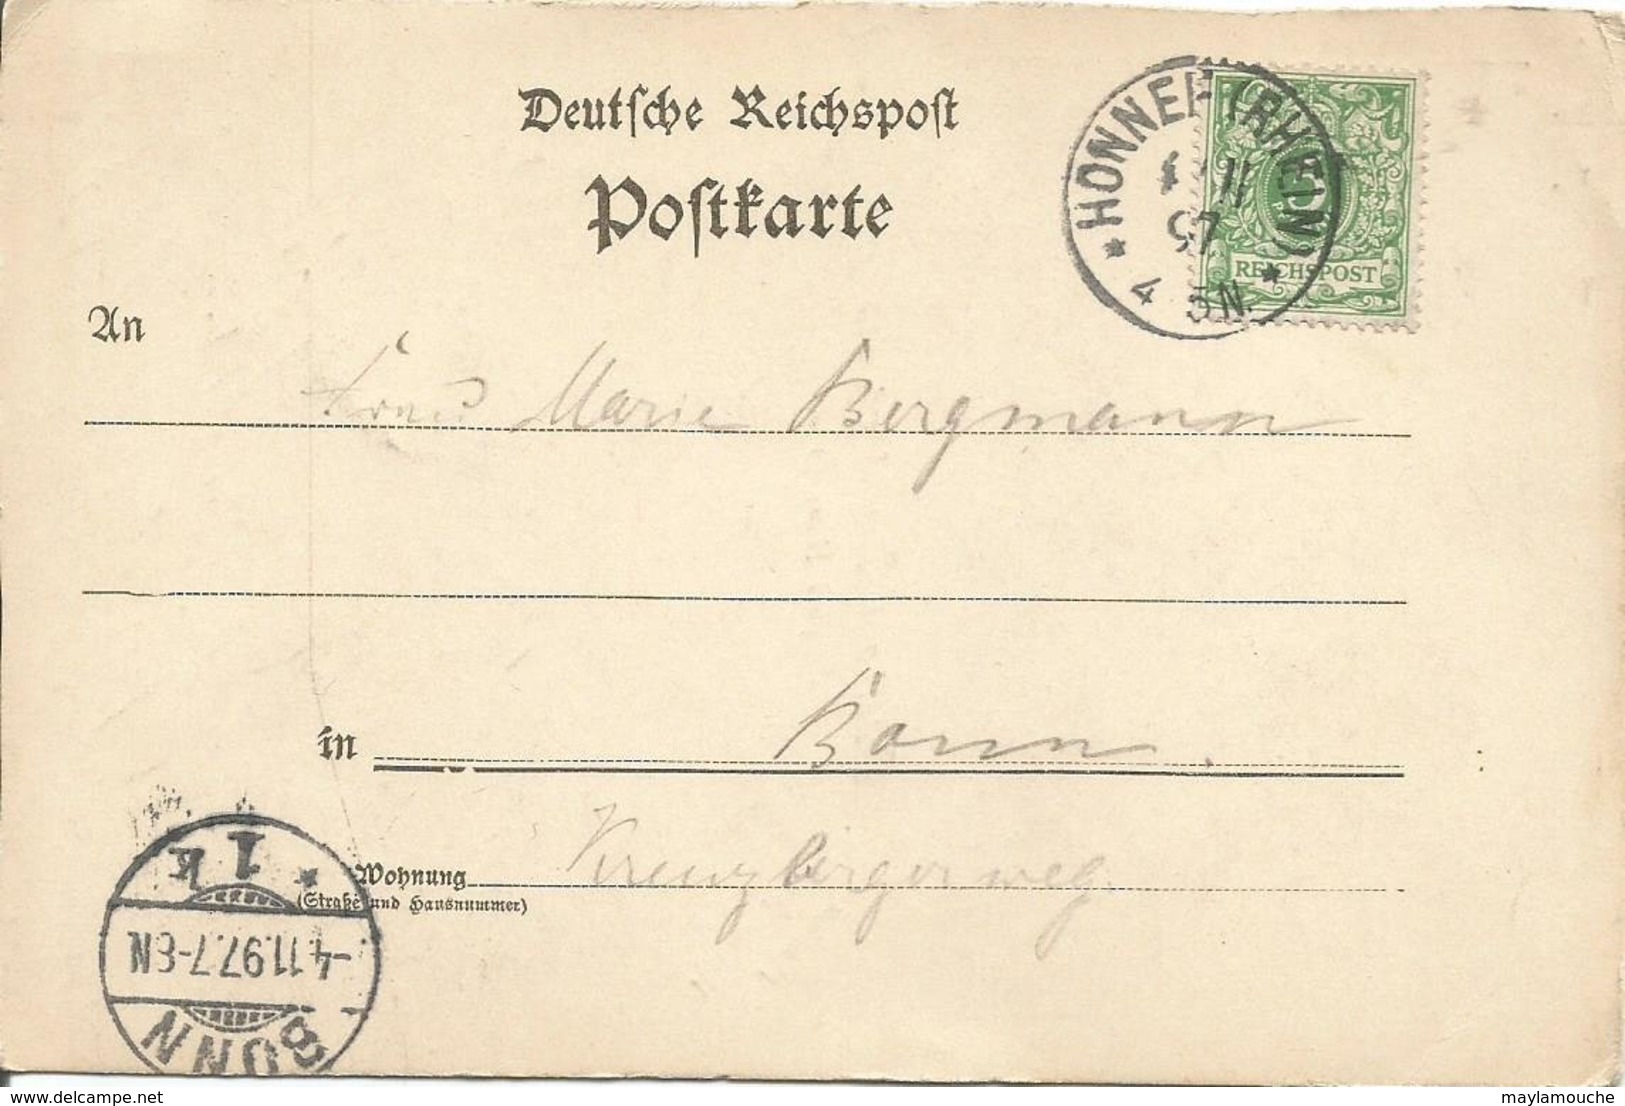 Deutsche Reichspost
Postkarte
HONNEF (RHEIN)
4 11
97
4 5N.
5
REICHSPOST
An
Frau Marie Bergmann
in Bonn.
Wohnung Kreuzbergerweg.
(Straße und Hausnummer)
BONN
-4.11.97.7-8N
1k
delcampe.net
maylamouche